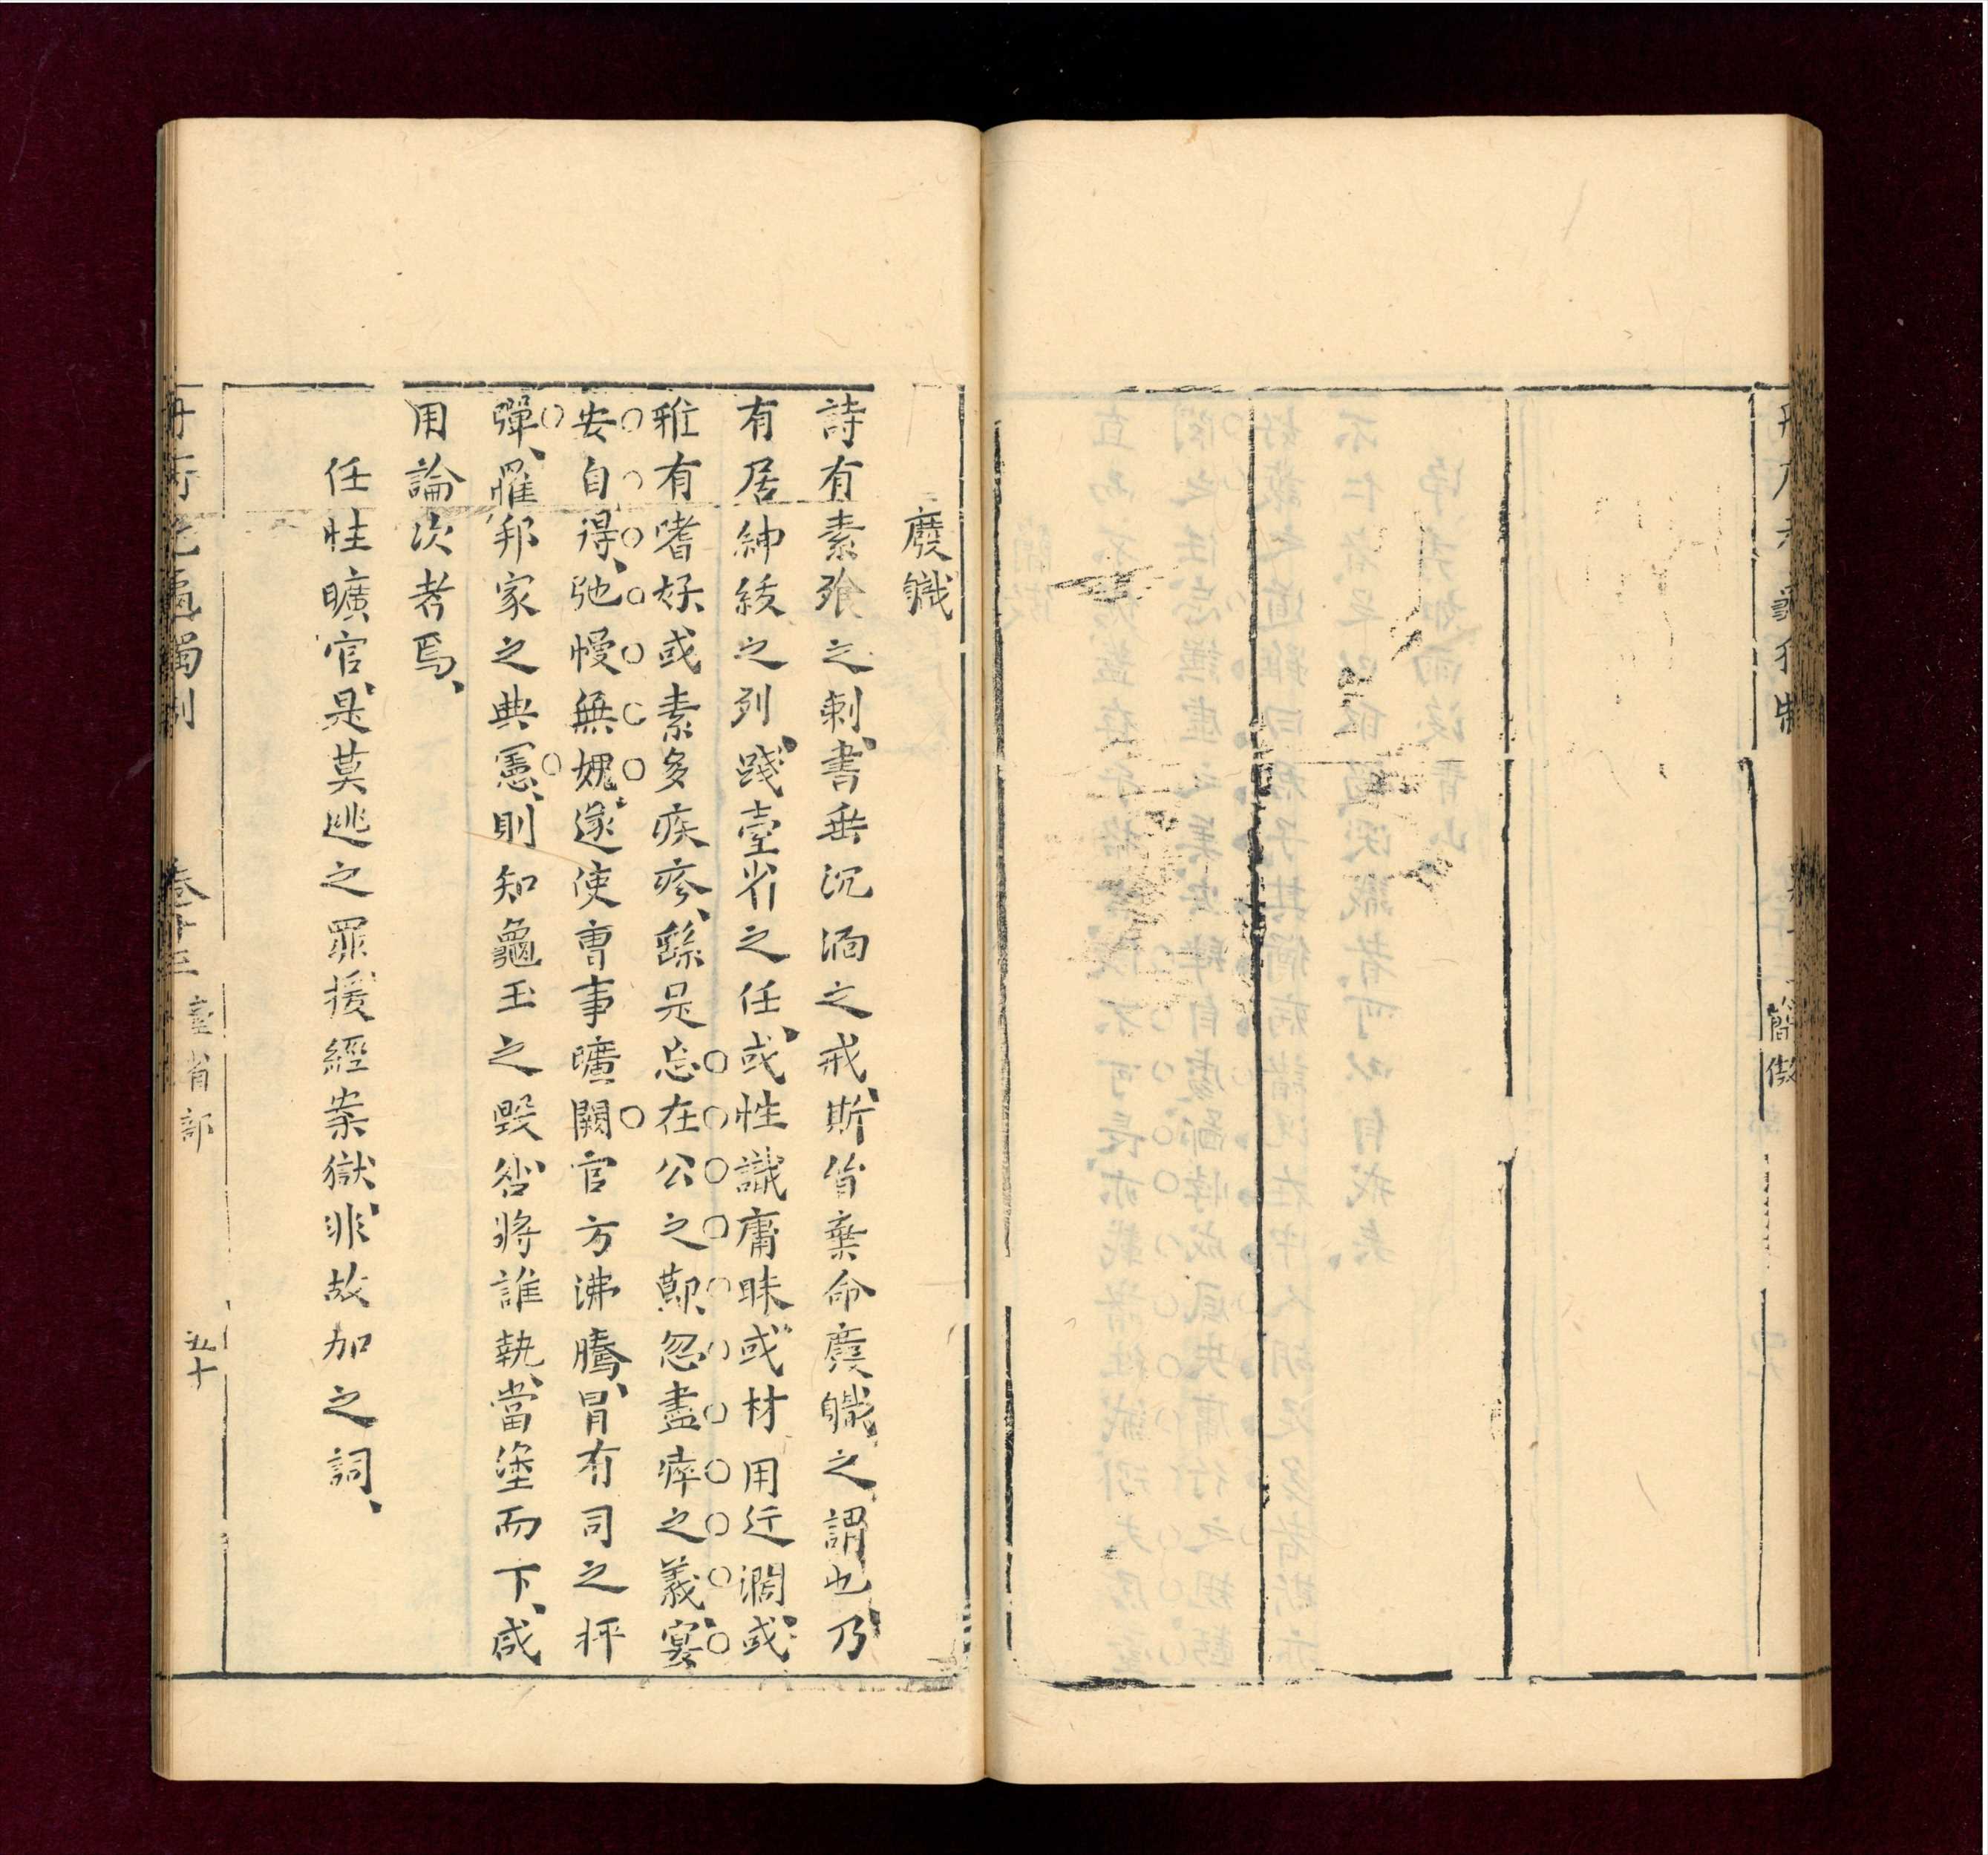 簡傲
廢職
詩有素飱之刺、書垂沉湎之戒、斯皆棄命廢職之謂也、乃
有居紳綬之列、踐臺省之任、或性識庸昧、或材用迂濶、或
雅有嗜好、或素多疾疹、繇是忘在公之勤、忽盡瘁之義、宴
安自得、弛慢無媿、遂使曹事曠闕、官方沸騰、冐有司之抨
彈、罹邦家之典憲、則知龜玉之毀、咎將誰執、當塗而下、咸
用論次者焉、
任眭曠官、是莫逃之罪、援經案獄、非故加之詞、
卷廿三 臺省部 五十